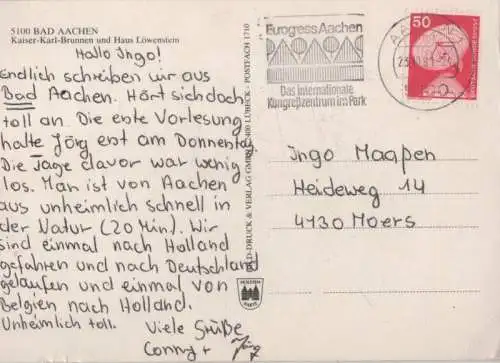 5100 BAD AACHEN
Kaiser-Karl-Brunnen und Haus Löwenstein
Hallo Ingo!
Endlich schreiben wir aus
Bad Aachen. Hört sich doch
toll an. Die erste Vorlesung
hatte Jörg erst am Donnerstag.
Die Tage davor war wenig
los. Man ist von Aachen
aus unheimlich schnell in
der Natur (20 Min). Wir
sind einmal nach Holland
gefahren und nach Deutschland
gelaufen und einmal von
Belgien nach Holland.
Unheimlich toll.
Viele Grüße
Conny + Jörg
BILD-DRUCK & VERLAG GMBH, 2400 LÜBECK · POSTFACH 1710
Eurogress Aachen
Das internationale
Kongreßzentrum im Park
50
Ingo Maaßen
Heideweg 14
4130 Moers